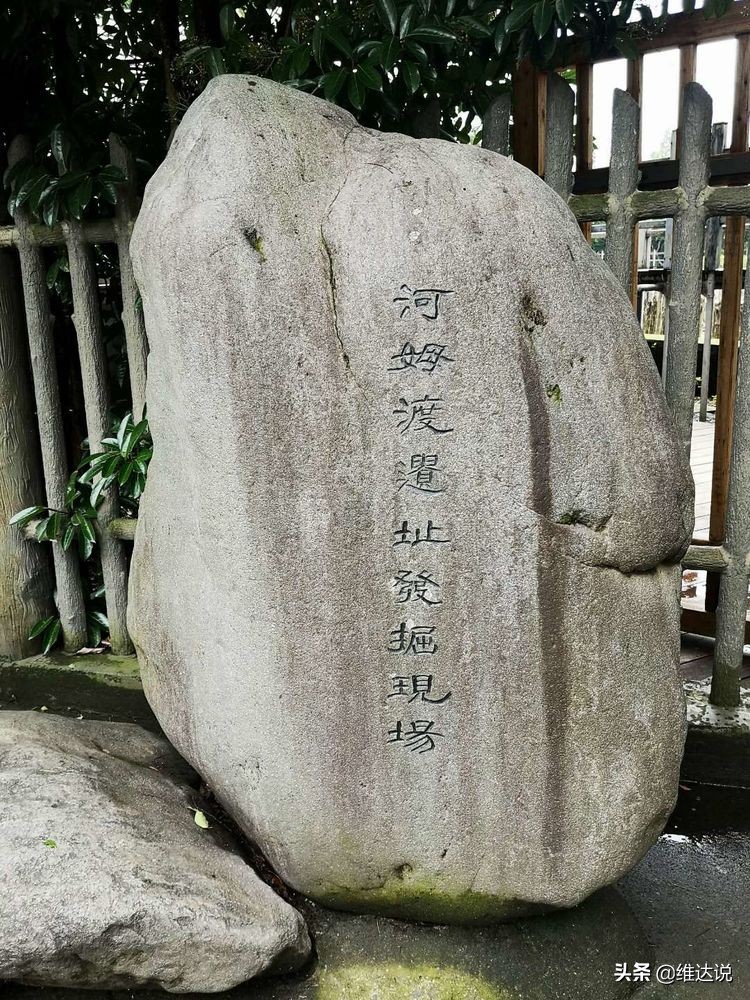 河姆渡遺址發掘現場
头条 @维达说